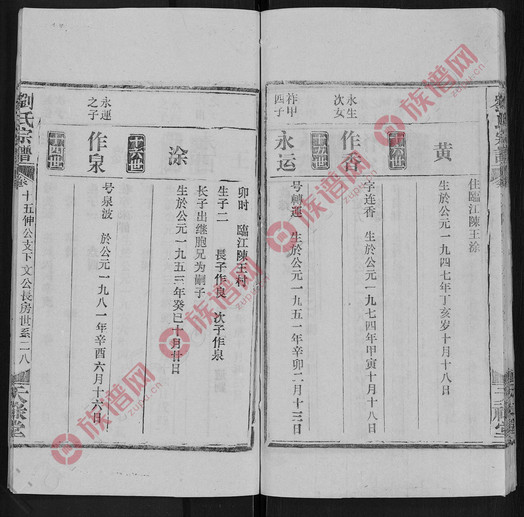 住臨江陳王涂
黄
生於公元一九四七年丁亥岁十月十八日
十六世
永生
次女
作香
字连香
生於公元一九七四年甲寅十月十八日
十五世
祚甲
四子
永运
号轉運
生於公元一九五一年辛卯二月十三日
卯时
臨江陳王村
生子二
長子作良
次子作泉
长子出继胞兄为嗣子
涂
生於公元一九五三年癸巳十月廿日
世
永運
之子
作泉
号泉波
於公元一九八一年辛酉六月十六日
劉氏宗譜
卷
十五伸公支下文公長房世系二八
天祿堂
族谱网
zupu.cn
族谱网
zupu.cn
族谱网
zupu.cn